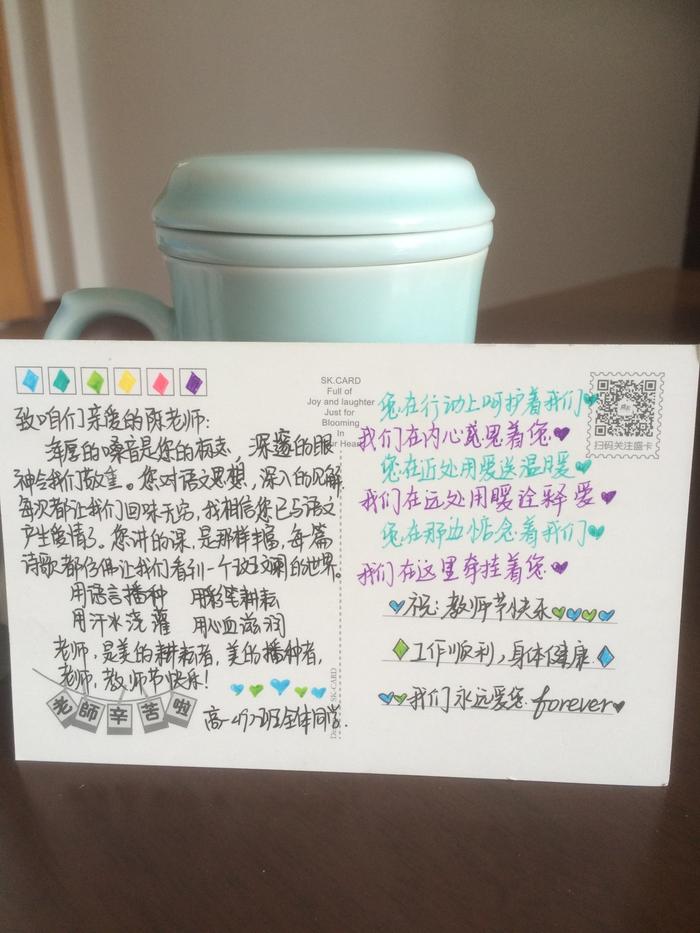 致咱们亲爱的陈老师:
浑厚的嗓音是您的标志,深邃的眼
神令我们敬重。您对语文思想,深入的见解
每次都让我们回味无穷,我相信您已与语文
产生爱情了。您讲的课,是那样丰富,每篇
诗歌都仿佛让我们看到一个斑斓的世界。
用语言播种 用彩笔耕耘
用汗水浇灌 用心血滋润
老师,是美的耕耘者,美的播种者,
老师,教师节快乐!
老師辛苦啦
班全体同学
SK.CARD
Full of
Joy and laughter
Just for
Blooming
In
您在行动上呵护着我们
我们在内心感恩着您
您在近处用爱送温暖
我们在远处用暖诠释爱
您在那边惦念着我们
我们在这里牵挂着您
祝:教师节快乐
工作顺利,身体健康
我们永远爱您 forever
扫码关注盛卡
SK-CARD